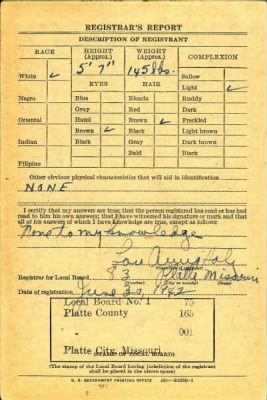 REGISTRAR'S REPORT
DESCRIPTION OF REGISTRANT
RACE HEIGHT (Approx.) WEIGHT (Approx.) COMPLEXION
5' 7" 145 lbs.
White ✓ Sallow
EYES HAIR Light ✓
Negro Blue Blonde Ruddy
Gray Red Dark
Oriental Hazel Brown ✓ Freckled
Brown ✓ Black Light brown
Indian Black Gray Dark brown
Bald Black
Filipino
Other obvious physical characteristics that will aid in identification
NONE
I certify that my answers are true; that the person registered has read or has had read to him his own answers; that I have witnessed his signature or mark and that all of his answers of which I have knowledge are true, except as follows:
None to my knowledge
Registrar for Local Board 3 Platte Missouri
Date of registration June 30 1942
Local Board No. 1 75
Platte County 165
001
Platte City, Missouri
(STAMP OF LOCAL BOARD)
(The stamp of the Local Board having jurisdiction of the registrant shall be placed in the above space)
U. S. GOVERNMENT PRINTING OFFICE